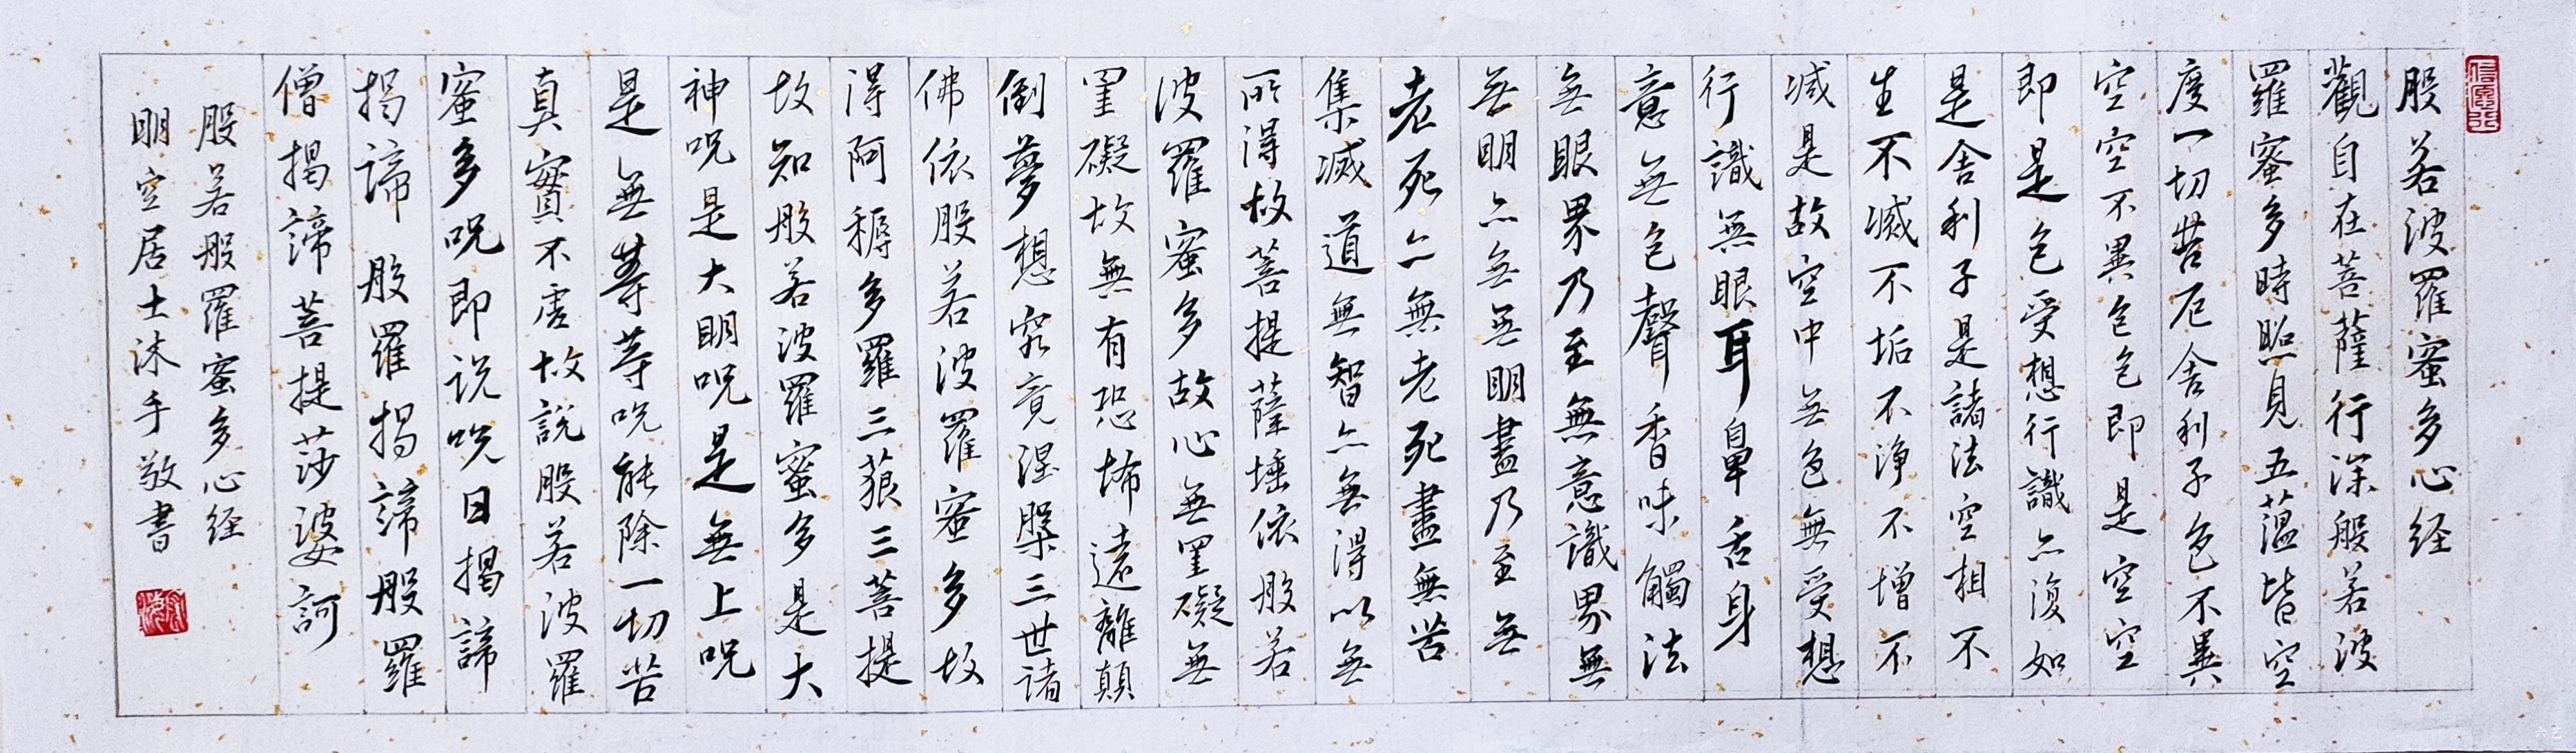 般若波羅蜜多心经
觀自在菩薩行深般若波
羅蜜多時照見五蕰皆空
度一切苦厄舍利子色不異
空空不異色色即是空空
即是色受想行識亦復如
是舍利子是諸法空相不
生不滅不垢不净不增不
减是故空中無色無受想
行識無眼耳鼻舌身
意無色聲香味觸法
無眼界乃至無意識界無
無明亦無無明盡乃至無
老死亦無老死盡無苦
集滅道無智亦無得以無
所得故菩提薩埵依般若
波羅蜜多故心無罣礙無
罣礙故無有恐怖遠離顛
倒夢想究竟涅槃三世諸
佛依般若波羅蜜多故
得阿耨多羅三藐三菩提
故知般若波羅蜜多是大
神呪是大明呪是無上呪
是無等等呪能除一切苦
真實不虚故説般若波羅
蜜多呪即说呪曰揭諦
揭諦般羅揭諦般羅
僧揭諦菩提莎婆訶
般若般羅蜜多心经
明空居士沐手敬書